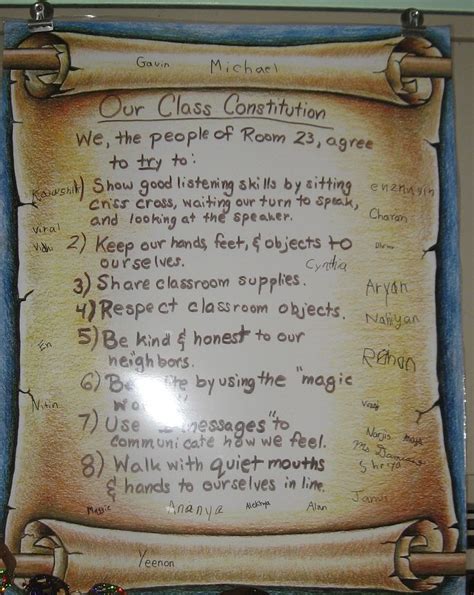 Gavin Michael
Our Class Constitution
We, the people of Room 23, agree
to try to:
1) Show good listening skills by sitting
criss cross, waiting our turn to speak,
and looking at the speaker.
Charan
Viral
2) Keep our hands, feet, & objects to
ourselves.
Cynthia
3) Share classroom supplies.
Aryan
4) Respect classroom objects.
5) Be kind & honest to our
neighbors.
Rohan
6) by using the "magic
Nitin
7) Use messages" to
communicate how we feel.
8) Walk with quiet mouths
& hands to ourselves in line.
Maggie Ananya Alan
Yeenon